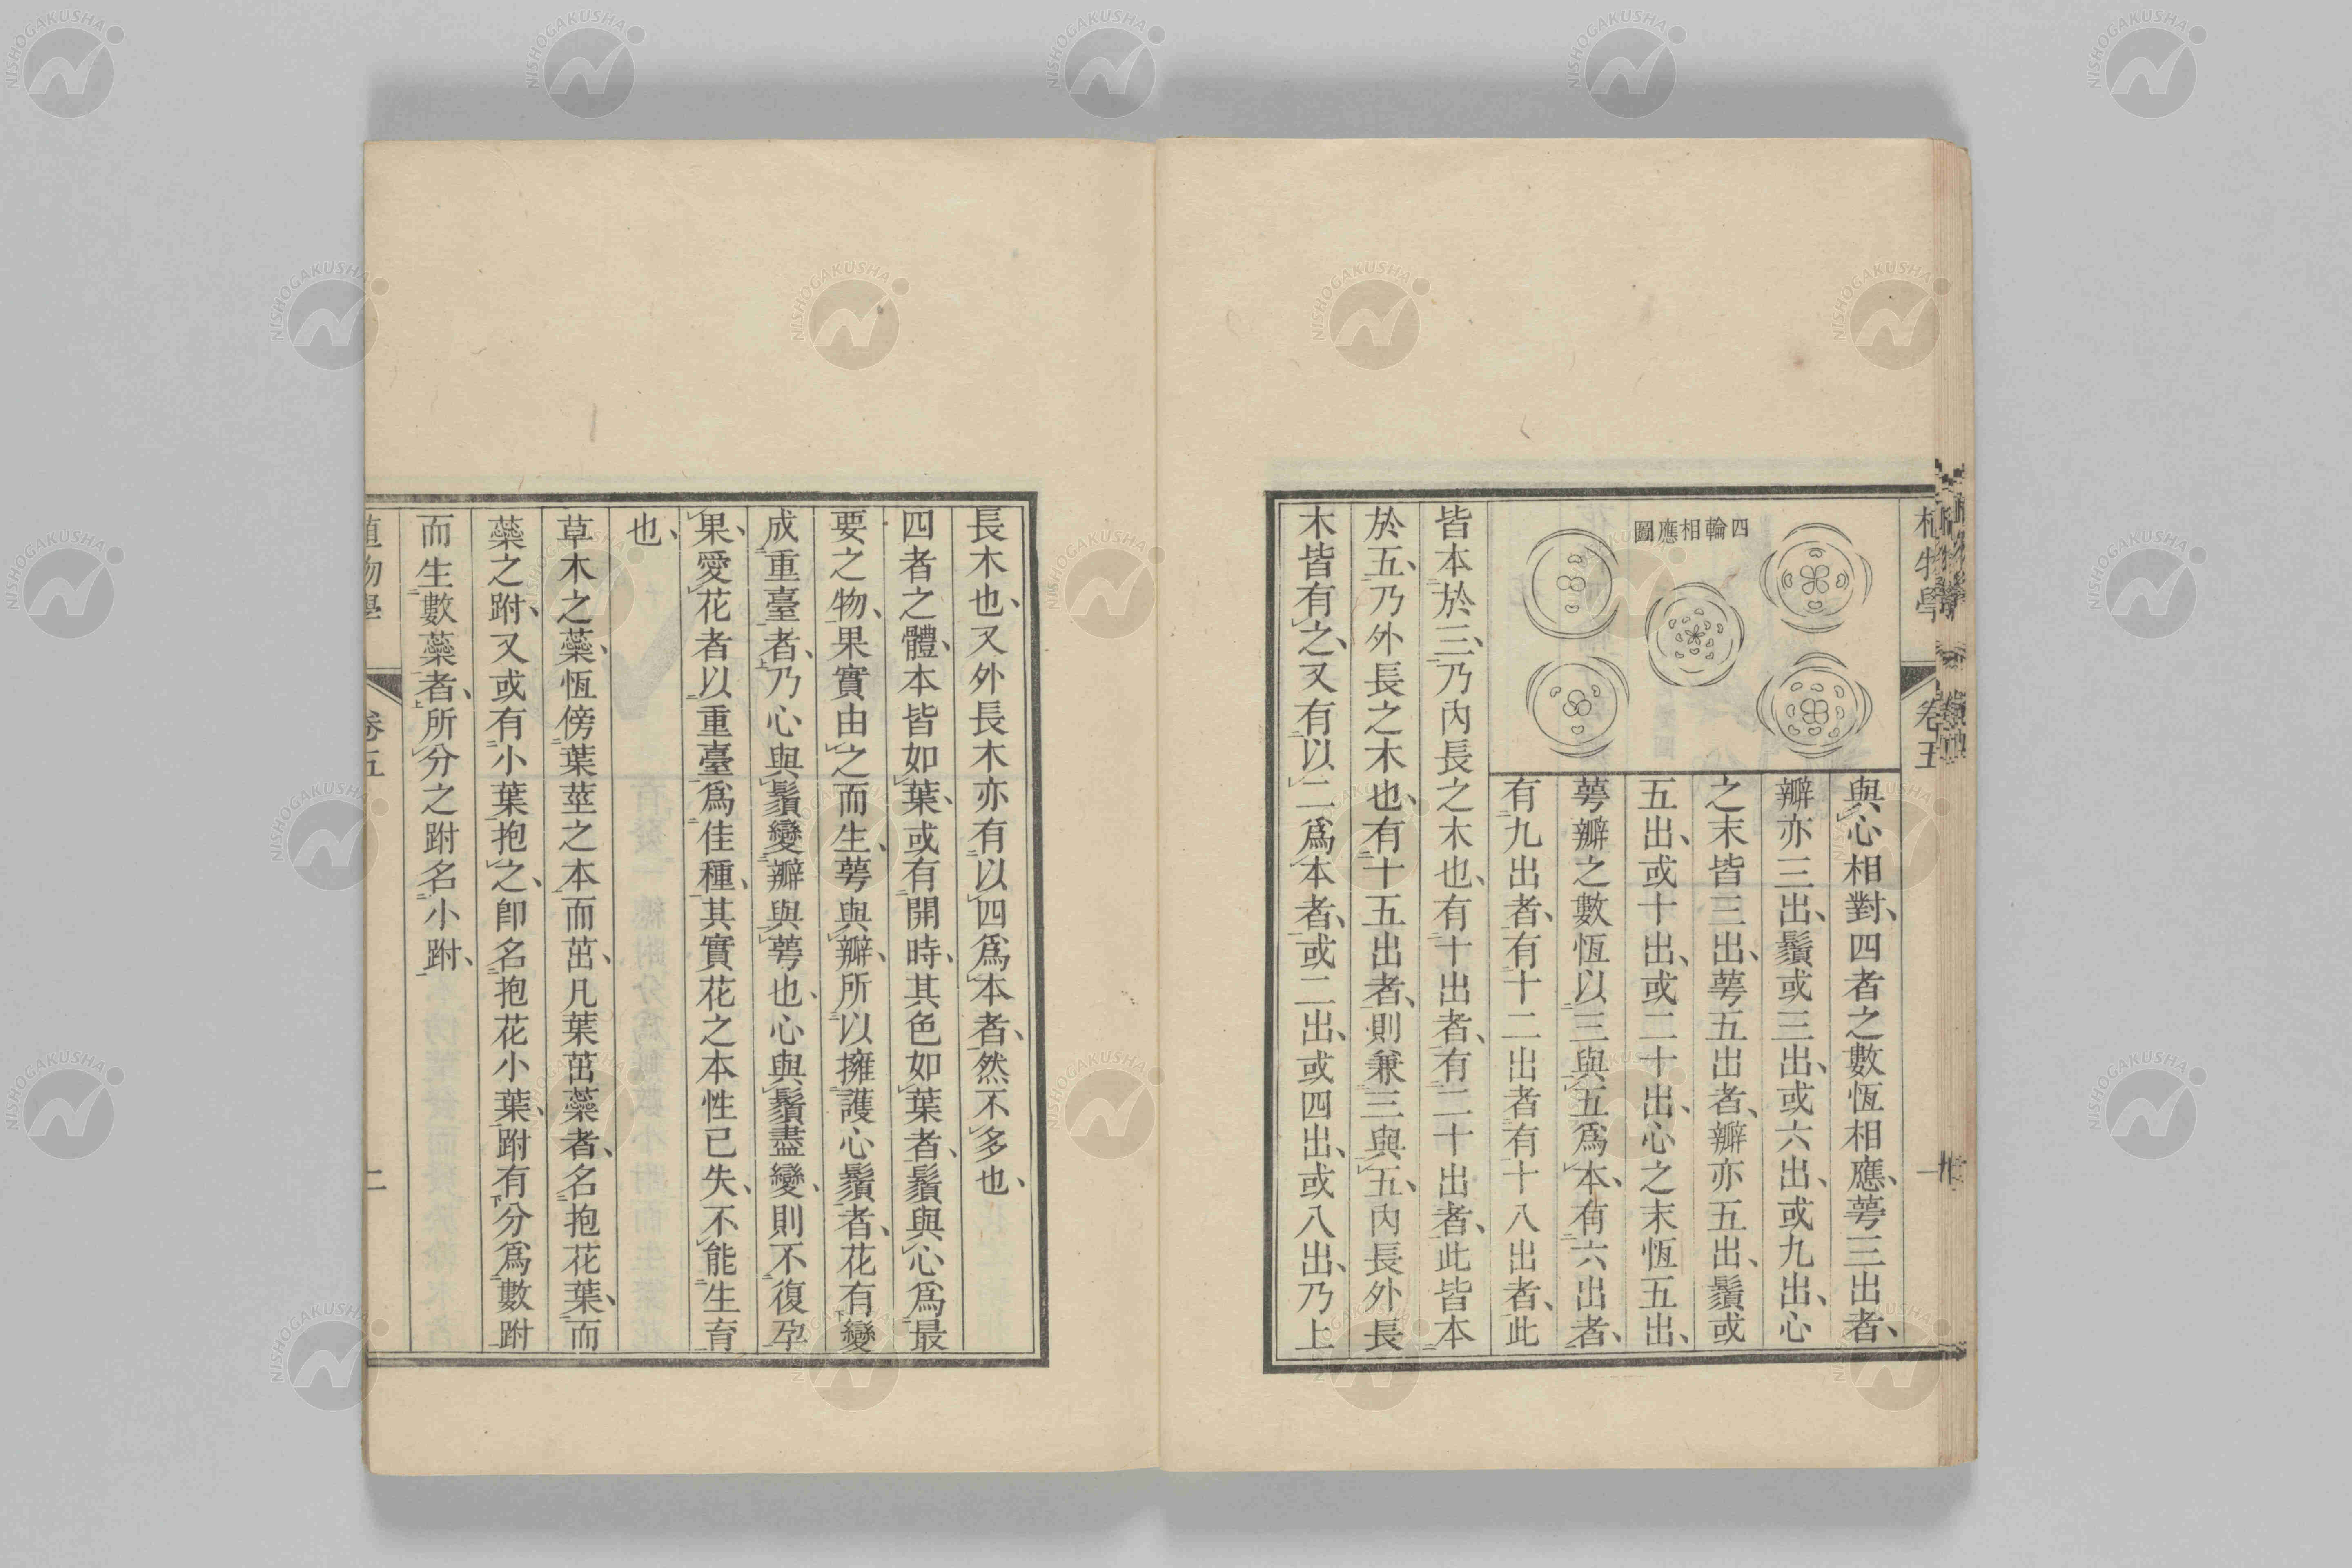 植物學 卷五 一
四輪相應圖
與心相對、四者之數恆相應、萼三出者、
瓣亦三出、鬚或三出、或六出、或九出、心
之末皆三出、萼五出者、瓣亦五出、鬚或
五出、或十出、或二十出、心之末恆五出、
萼瓣之數恆以三與五爲本、有六出者、
有九出者、有十二出者有十八出者、此
皆本於三、乃內長之木也、有十出者、有二十出者、此皆本
於五、乃外長之木也、有十五出者、則兼三與五、內長外長
木皆有之、又有以二爲本者、或二出、或四出、或八出、乃上
長木也、又外長木亦有以四爲本者、然不多也、
四者之體、本皆如葉、或有開時、其色如葉者、鬚與心爲最
要之物、果實由之而生、萼與瓣、所以擁護心鬚者、花有變
成重臺者、乃心與鬚變瓣與萼也、心與鬚盡變、則不復孕
果、愛花者以重臺爲佳種、其實花之本性已失、不能生育
也、
草木之蘂、恆傍葉莖之本而茁、凡葉茁蘂者、名抱花葉、而
蘂之跗、又或有小葉抱之、卽名抱花小葉、跗有分爲數跗
而生數蘂者、所分之跗名小跗、
植物學 卷五 二
NISHOGAKUSHA